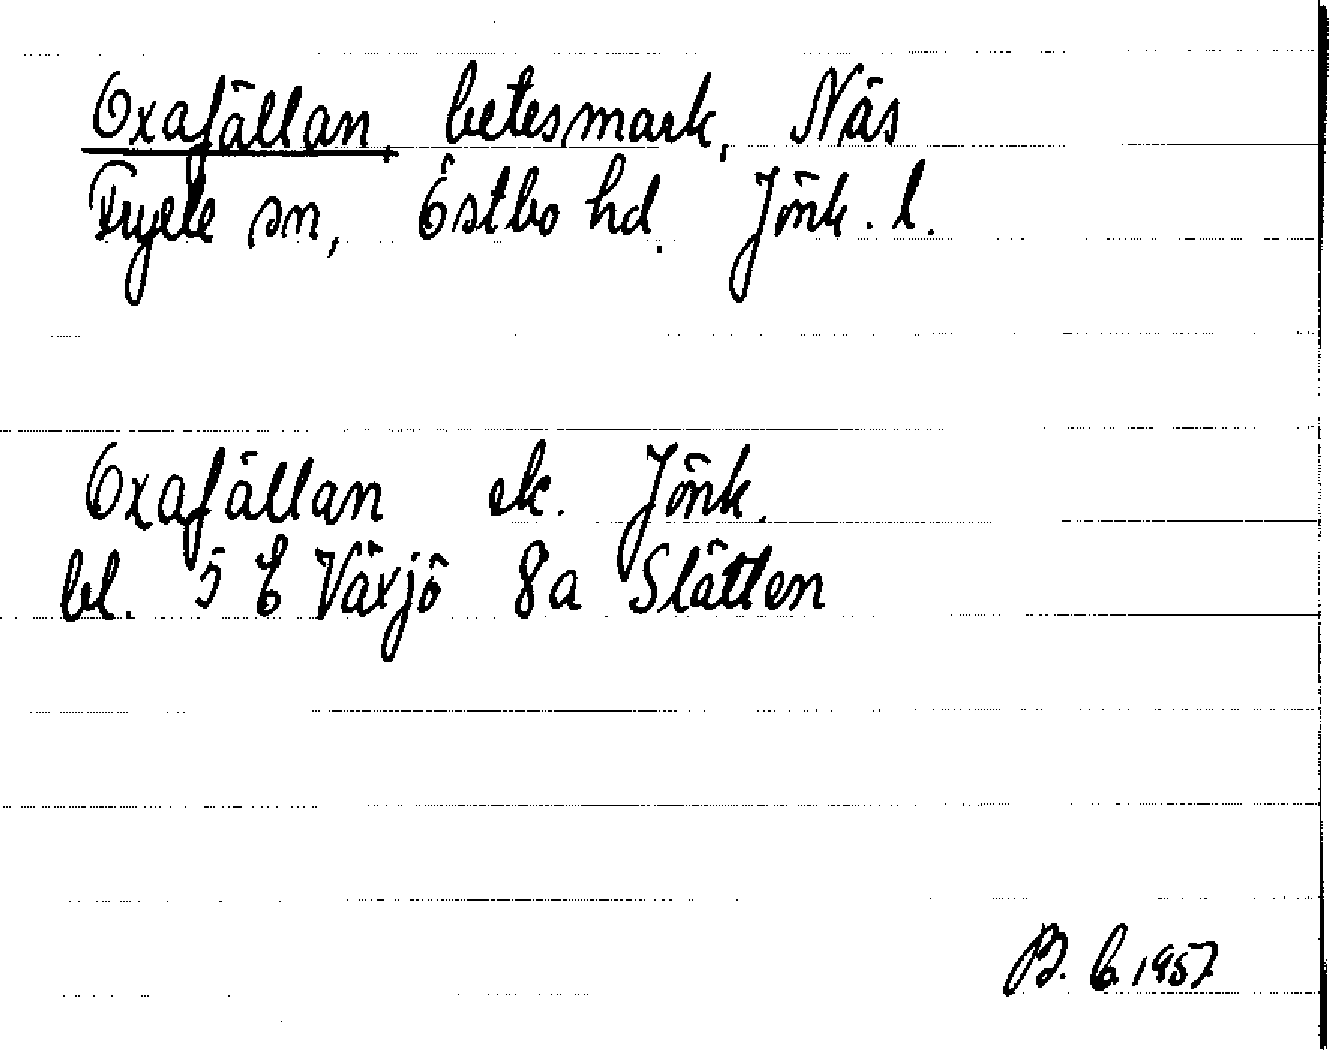 Oxafällan, betesmark, Näs
Fryele sn, Östbo hd. Jönk. l.
Oxafällan ek. Jönk.
bl. 5 E Växjö 8a Slätten
B. E. 1957